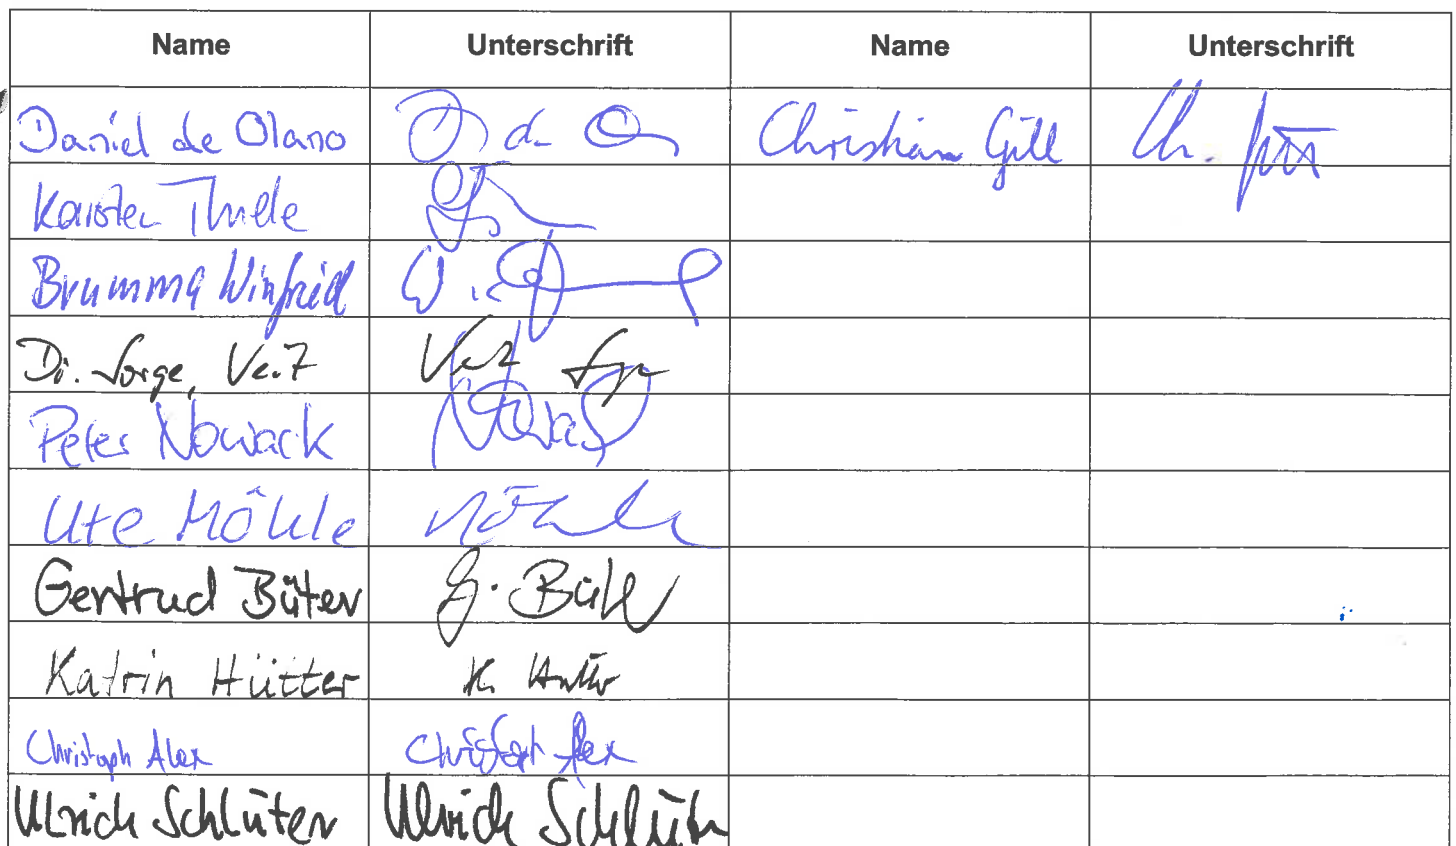 Name Unterschrift Name Unterschrift
Daniel de Olano D de O Christian Gill Ch. Gill
Karsten Thiele
Brumma Winfried W.
Dr. Sorge, Veit Veit Sorge
Peter Nowack Nowack
Ute Möhle Möhle
Gertrud Büter G. Büter
Katrin Hütter K. Hütter
Christoph Alex Christoph Alex
Ulrich Schlüter Ulrich Schlüter